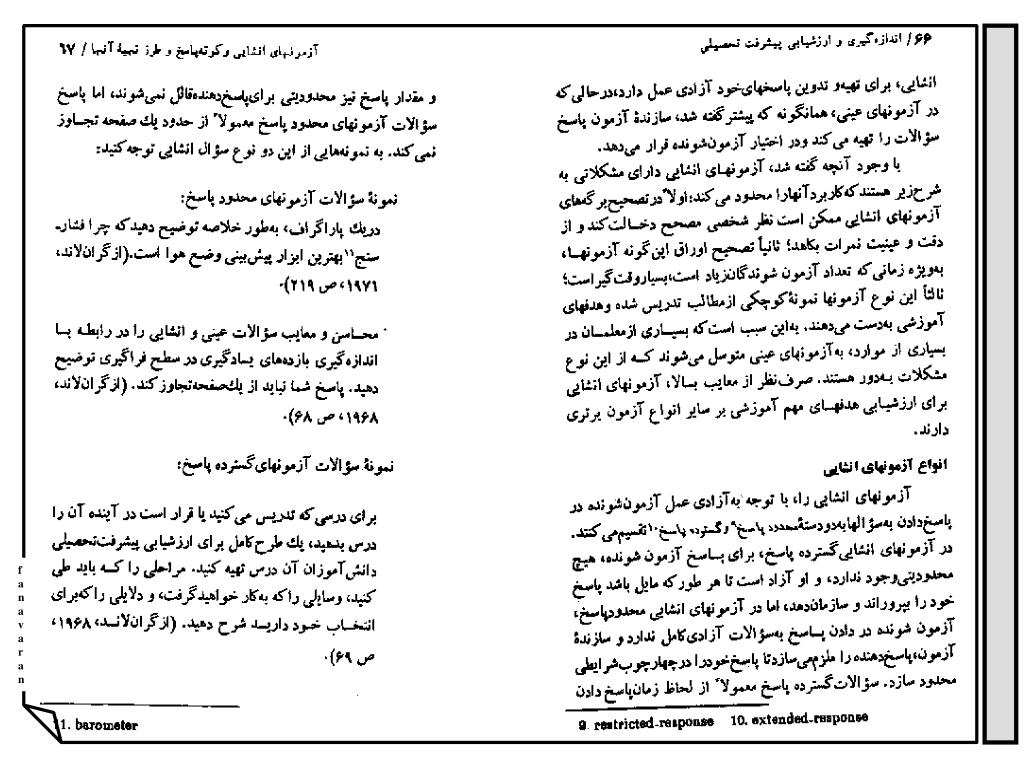 ۶۶ / اندازه‌گیری و ارزشیابی پیشرفت تحصیلی
انشایی، برای تهیه و تدوین پاسخهای خود آزادی عمل دارد، در حالی که
در آزمونهای عینی، همانگونه که پیشتر گفته شد، سازندهٔ آزمون پاسخ
سؤالات را تهیه می‌کند و در اختیار آزمون‌شونده قرار می‌دهد.
با وجود آنچه گفته شد، آزمونهای انشایی دارای مشکلاتی به
شرح زیر هستند که کاربرد آنها را محدود می‌کند: اولاً در تصحیح برگه‌های
آزمونهای انشایی ممکن است نظر شخصی مصحح دخالت کند و از
دقت و عینیت نمرات بکاهد؛ ثانیاً تصحیح اوراق این گونه آزمونها،
به‌ویژه زمانی که تعداد آزمون شوندگان زیاد است، بسیار وقت‌گیر است؛
ثالثاً این نوع آزمونها نمونهٔ کوچکی از مطالب تدریس شده و هدفهای
آموزشی به‌دست می‌دهند. به‌این سبب است که بسیاری از معلمان در
بسیاری از موارد، به آزمونهای عینی متوسل می‌شوند که از این نوع
مشکلات به‌دور هستند. صرف‌نظر از معایب بالا، آزمونهای انشایی
برای ارزشیابی هدفهای مهم آموزشی بر سایر انواع آزمون برتری
دارند.
انواع آزمونهای انشایی
آزمونهای انشایی را، با توجه به آزادی عمل آزمون‌شونده در
پاسخ‌دادن به سؤالها به دو دستهٔ محدود پاسخ۹ و گسترده پاسخ۱۰ تقسیم می‌کنند.
در آزمونهای انشایی گسترده پاسخ، برای پاسخ آزمون شونده، هیچ
محدودیتی وجود ندارد، و او آزاد است تا هر طور که مایل باشد پاسخ
خود را بپروراند و سازمان دهد، اما در آزمونهای انشایی محدود پاسخ،
آزمون شونده در دادن پاسخ به سؤالات آزادی کامل ندارد و سازندهٔ
آزمون، پاسخ‌دهنده را ملزم می‌سازد تا پاسخ خود را در چهارچوب شرایطی
محدود سازد. سؤالات گسترده پاسخ معمولاً از لحاظ زمان پاسخ دادن
9. restricted-response 10. extended-response
آزمونهای انشایی و کوته‌پاسخ و طرز تهیهٔ آنها / ۶۷
و مقدار پاسخ نیز محدودیتی برای پاسخ‌دهنده قائل نمی‌شوند، اما پاسخ
سؤالات آزمونهای محدود پاسخ معمولاً از حدود یك صفحه تجاوز
نمی‌کند. به نمونه‌هایی از این دو نوع سؤال انشایی توجه کنید:
نمونهٔ سؤالات آزمونهای محدود پاسخ:
در یك پاراگراف، به‌طور خلاصه توضیح دهید که چرا فشار-
سنج۱۱ بهترین ابزار پیش‌بینی وضع هوا است. (از گران‌لاند،
۱۹۷۱، ص ۲۱۹).
محاسن و معایب سؤالات عینی و انشایی را در رابطه با
اندازه‌گیری بازده‌های یادگیری در سطح فراگیری توضیح
دهید. پاسخ شما نباید از یك صفحه تجاوز کند. (از گران‌لاند،
۱۹۶۸، ص ۶۸).
نمونهٔ سؤالات آزمونهای گسترده پاسخ:
برای درسی که تدریس می‌کنید یا قرار است در آینده آن را
درس بدهید، یك طرح کامل برای ارزشیابی پیشرفت تحصیلی
دانش‌آموزان آن درس تهیه کنید. مراحلی را که باید طی
کنید، وسایلی را که به‌کار خواهید گرفت، و دلایلی را که برای
انتخاب خود دارید شرح دهید. (از گران‌لاند، ۱۹۶۸،
ص ۶۹).
11. barometer
fanavaran